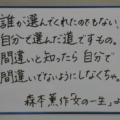 誰が選んでくれたのでもない、
自分で選んだ道ですもの。
間違いと知ったら自分で
間違いでないようにしなくちゃ。
森本薫作「女の一生」よ